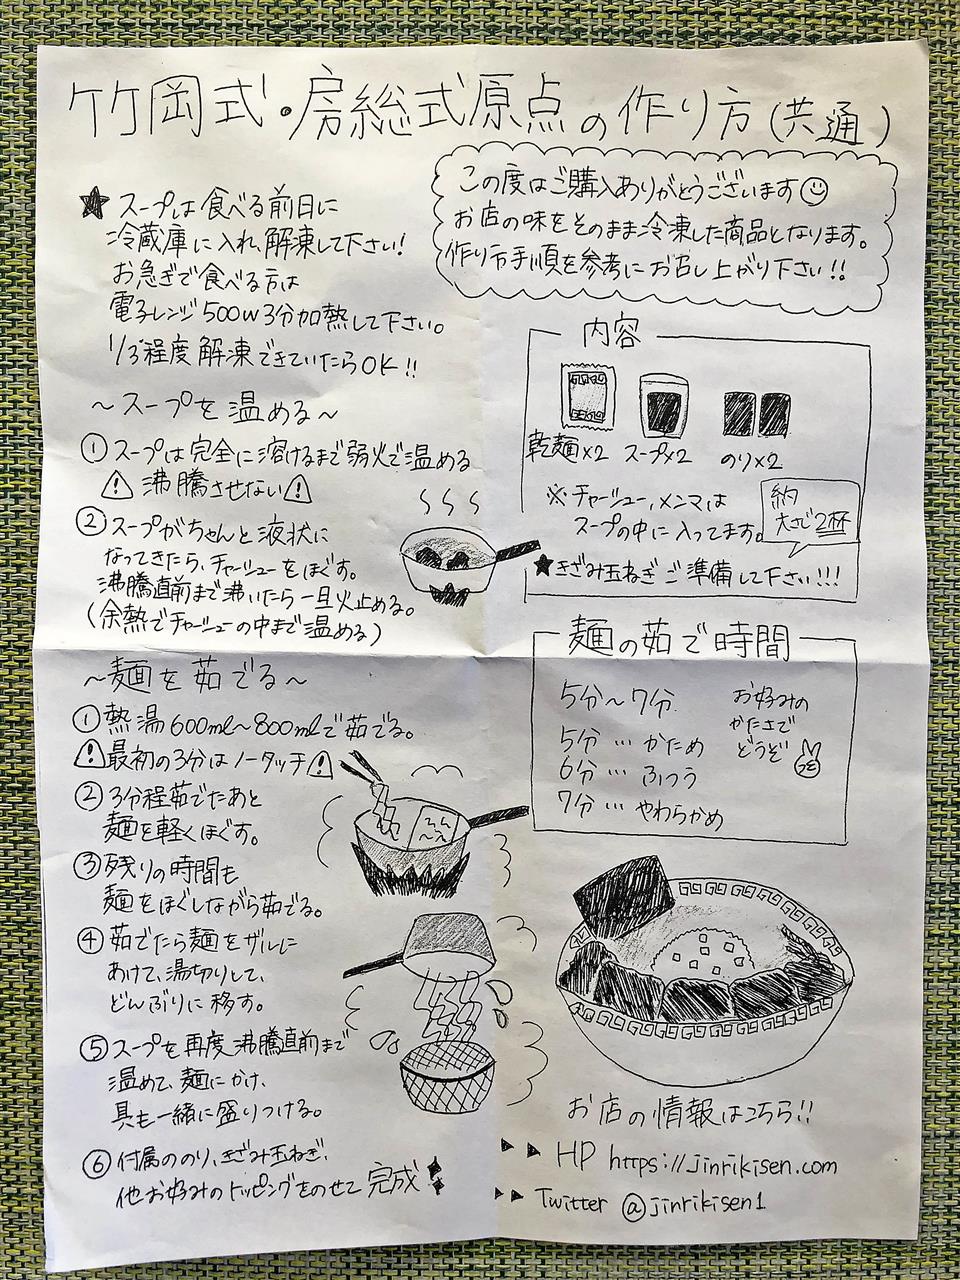 竹岡式・房総式原点の作り方(共通)
この度はご購入ありがとうございます
お店の味をそのまま冷凍した商品となります。
作り方手順を参考にお召し上がり下さい!!
★スープは食べる前日に
冷蔵庫に入れ、解凍して下さい!
お急ぎで食べる方は
電子レンジ500w3分加熱して下さい。
1/3程度解凍できていたらOK!!
〜スープを温める〜
①スープは完全に溶けるまで弱火で温める
⚠沸騰させない⚠
②スープがちゃんと液状に
なってきたら、チャーシューをほぐす。
沸騰直前まで沸いたら一旦火止める。
(余熱でチャーシューの中まで温める)
〜麺を茹でる〜
①熱湯600ml〜800mlで茹でる。
⚠最初の3分はノータッチ⚠
②3分程茹でたあと
麺を軽くほぐす。
③残りの時間も
麺をほぐしながら茹でる。
④茹でたら麺をザルに
あけて、湯切りして、
どんぶりに移す。
⑤スープを再度沸騰直前まで
温めて、麺にかけ、
具も一緒に盛りつける。
⑥付属ののり、きざみ玉ねぎ、
他お好みのトッピングをのせて完成
内容
乾麺×2 スープ×2 のり×2
※チャーシュー、メンマは
スープの中に入ってます。
約
大さじ2杯
★きざみ玉ねぎご準備して下さい!!!
麺の茹で時間
5分〜7分
5分…かため
6分…ふつう
7分…やわらかめ
お好みの
かたさで
どうぞ
お店の情報はこちら!!
▶▶ HP https://jinrikisen.com
▶▶ Twitter @jinrikisen1